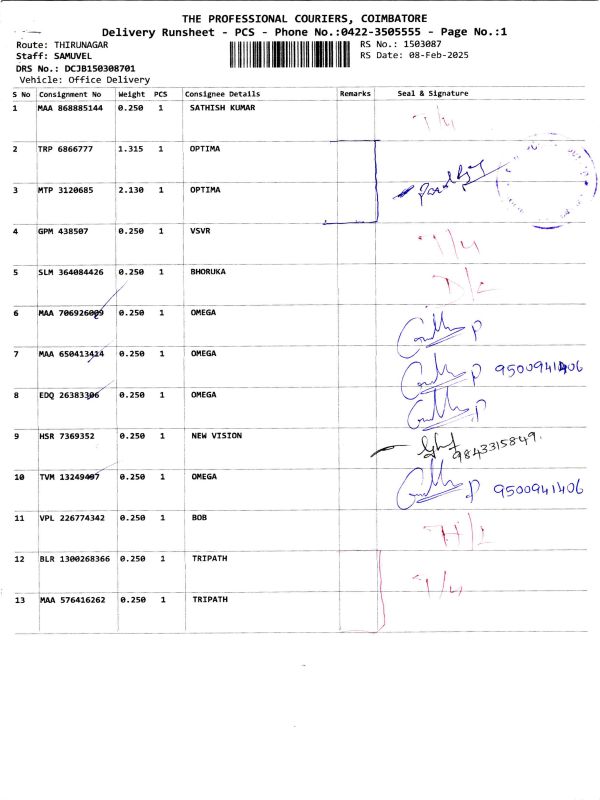 THE PROFESSIONAL COURIERS, COIMBATORE
Delivery Runsheet - PCS - Phone No.:0422-3505555 - Page No.:1
Route: THIRUNAGAR
RS No.: 1503087
Staff: SAMUVEL
RS Date: 08-Feb-2025
DRS No.: DCJB150308701
Vehicle: Office Delivery
S No Consignment No Weight PCS Consignee Details Remarks Seal & Signature
1 MAA 868885144 0.250 1 SATHISH KUMAR
2 TRP 6866777 1.315 1 OPTIMA
3 MTP 3120685 2.130 1 OPTIMA
4 GPM 438507 0.250 1 VSVR
5 SLM 364084426 0.250 1 BHORUKA
6 MAA 706926009 0.250 1 OMEGA
7 MAA 650413414 0.250 1 OMEGA 9500941406
8 EDQ 26383306 0.250 1 OMEGA
9 HSR 7369352 0.250 1 NEW VISION 9843315849.
10 TVM 13249497 0.250 1 OMEGA 9500941406
11 VPL 226774342 0.250 1 BOB
12 BLR 1300268366 0.250 1 TRIPATH
13 MAA 576416262 0.250 1 TRIPATH